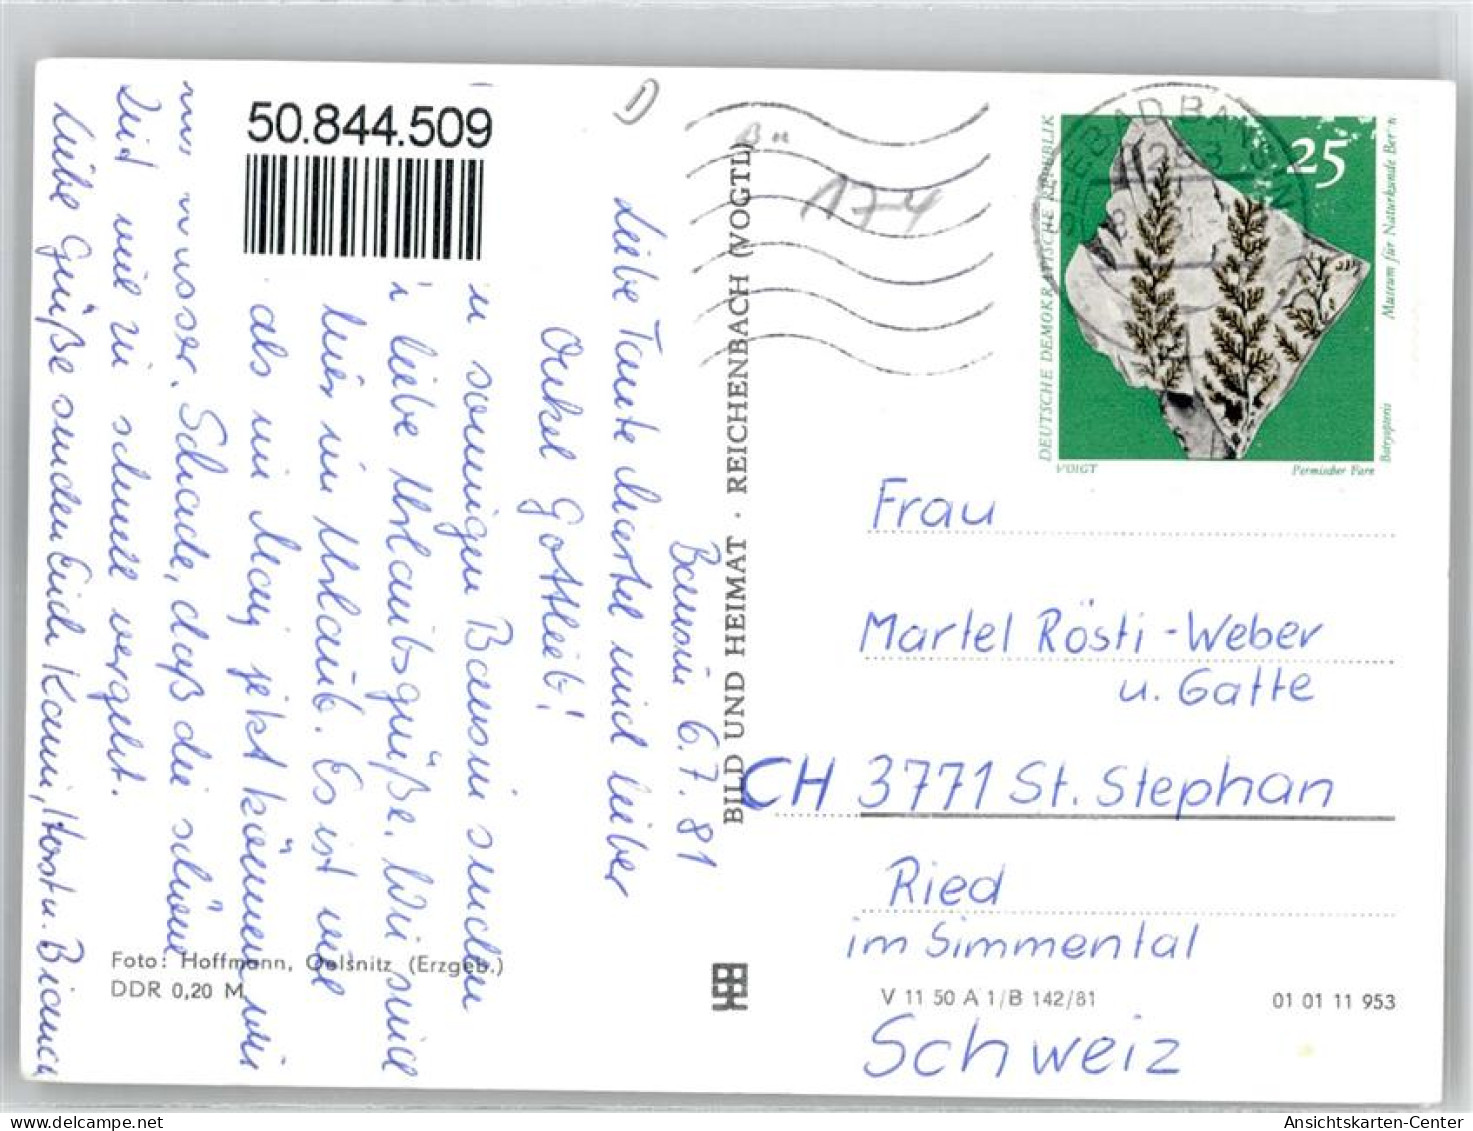 50.844.509
Bansin 6.7.81
Liebe Tante Martel und lieber
Onkel Gottlieb!
sonnigen Bansin senden
liebe Urlaubsgrüße. Wir sind
hier im Urlaub. Es ist viel
als im May jetzt können wir
nur nasser. Schade, daß die schöne
Zeit viel zu schnell vergeht.
Liebe Grüße senden Euch Karin, Horst u. Bianca
Foto: Hoffmann, Oelsnitz (Erzgeb.)
DDR 0,20 M
BILD UND HEIMAT · REICHENBACH (VOGTL)
174
SEEBAD BANSIN
DEUTSCHE DEMOKRATISCHE REPUBLIK
25
Museum für Naturkunde Berlin
VOIGT
Permischer Farn
Frau
Martel Rösti-Weber
u. Gatte
CH 3771 St. Stephan
Ried
im Simmental
Schweiz
V 11 50 A 1/B 142/81
01 01 11 953
Ansichtskarten-Center